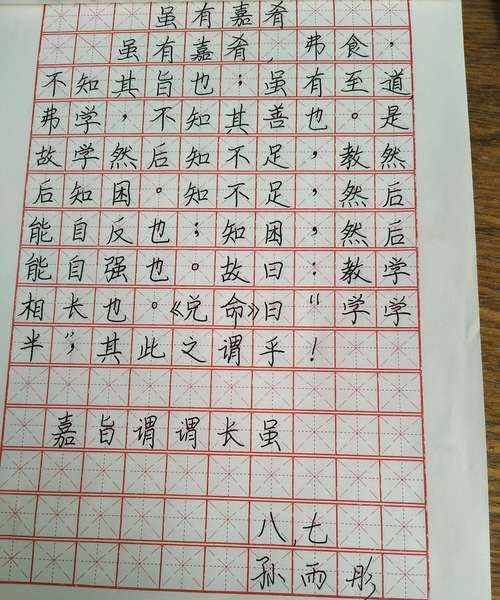 虽有嘉肴
虽有嘉肴,弗食,
不知其旨也;虽有至道,
弗学,不知其善也。是
故学然后知不足,教然
后知困。知不足,然后
能自反也;知困,然后
能自强也。故曰:教学
相长也。《兑命》曰“学学
半”,其此之谓乎!
嘉旨谓谓长虽
八,七
孙雨彤